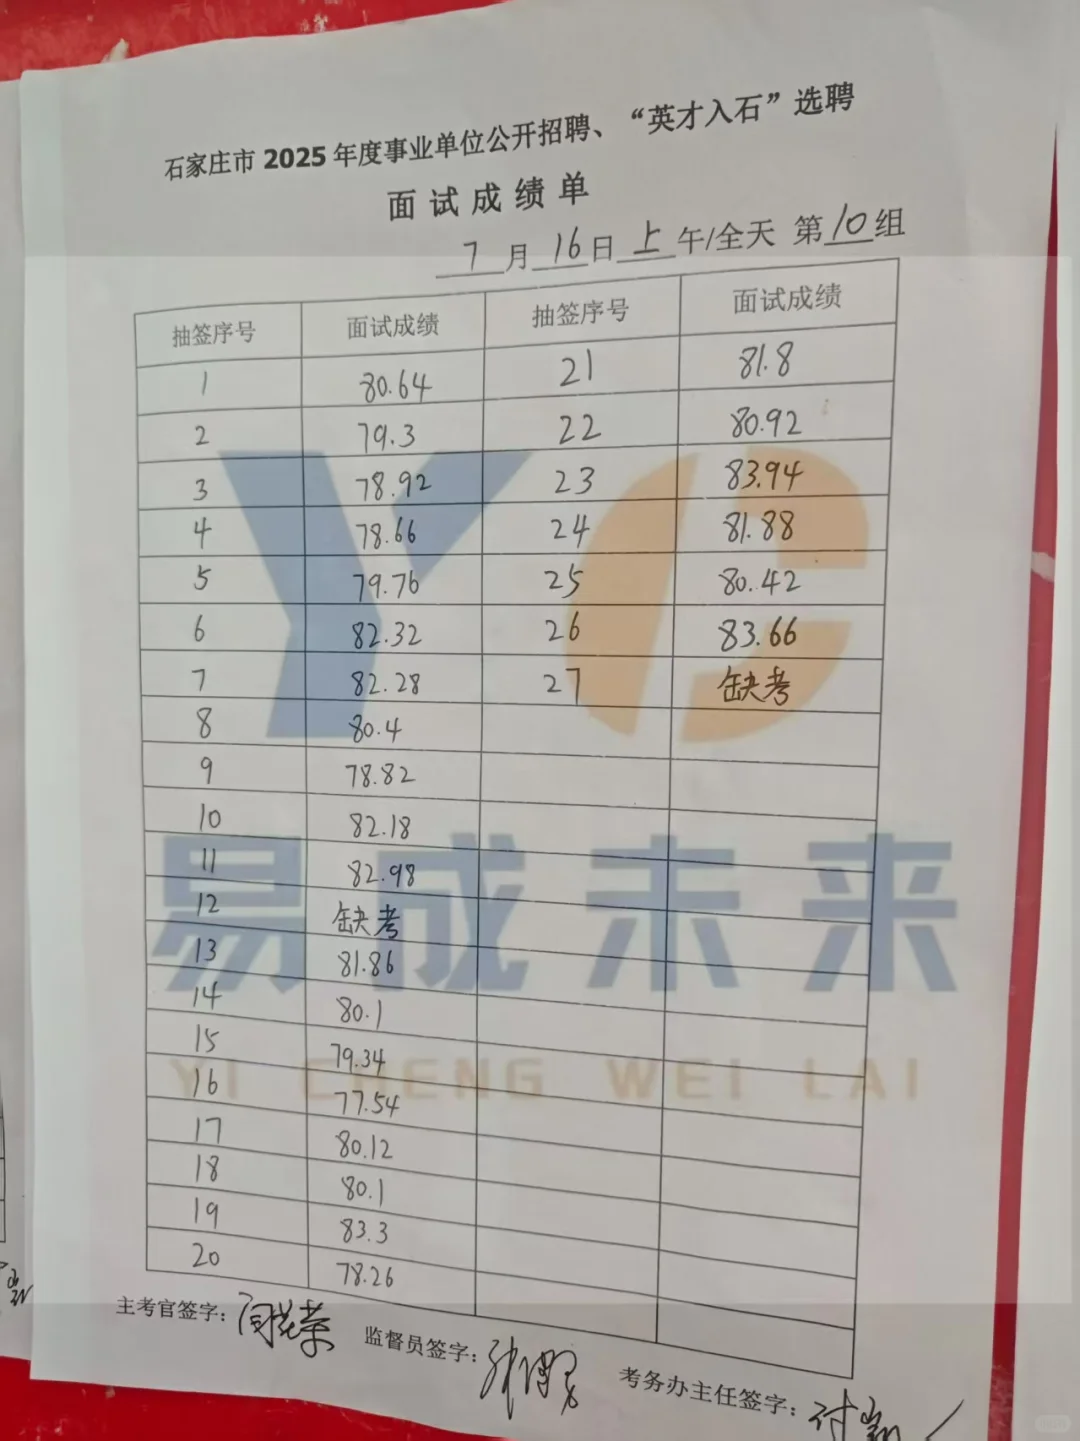 石家庄市 2025 年度事业单位公开招聘、“英才入石”选聘
面试成绩单
7 月 16 日 上 午/全天 第 10 组
抽签序号 面试成绩 抽签序号 面试成绩
1 80.64 21 81.8
2 79.3 22 80.92
3 78.92 23 83.94
4 78.66 24 81.88
5 79.76 25 80.42
6 82.32 26 83.66
7 82.28 27 缺考
8 80.4
9 78.82
10 82.18
11 82.98
12 缺考
13 81.86
14 80.1
15 79.34
16 77.54
17 80.12
18 80.1
19 83.3
20 78.26
主考官签字：
监督员签字：
考务办主任签字：
YC
易成未来
YI CHENG WEI LAI